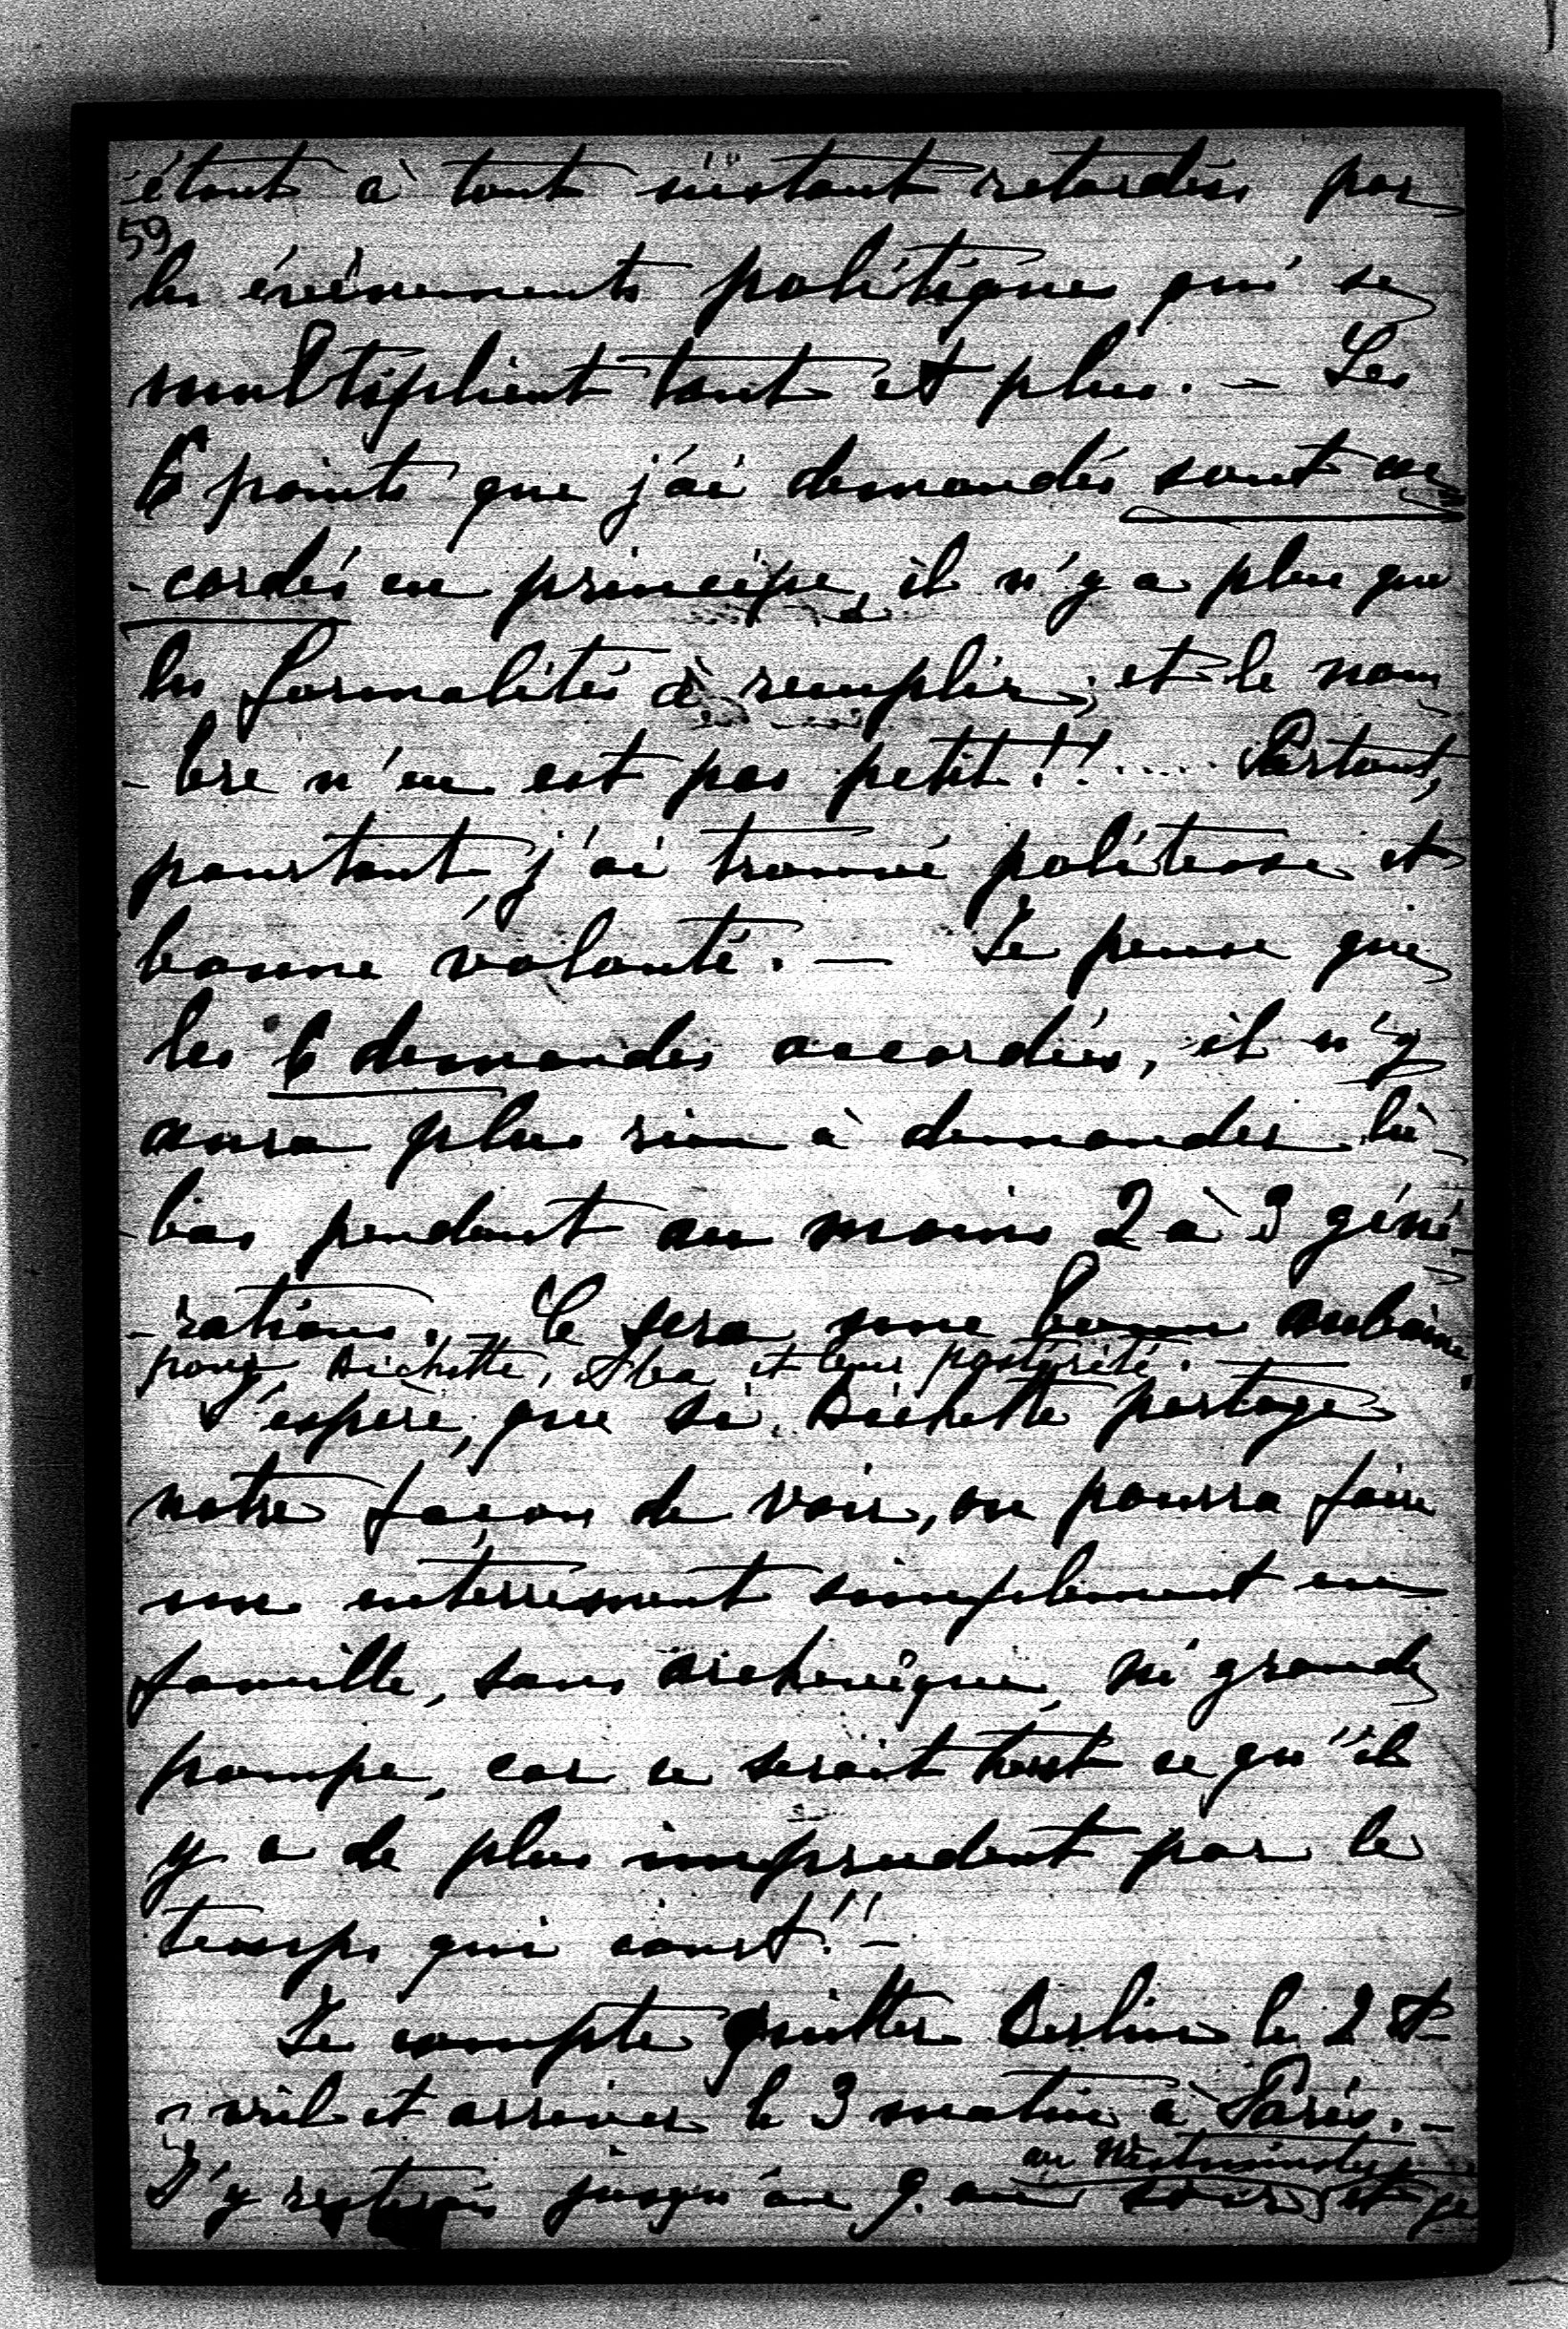 étant à tout instant retardés par
59
les événements politiques qui se
multiplient tant et plus. — Les
6 points que j'ai demandés sont ac
-cordés en principe, il n'y a plus que
les formalités à remplir; et le nom
-bre n'en est pas petit!!..... Partout,
pourtant, j'ai trouvé politesse et
bonne volonté. — Je pense que
les 6 demandes accordées, il n'y
aura plus rien à demander là-
-bas pendant au moins 2 à 3 géné-
-rations. — Ce sera une bonne aubaine
pour Bichette, Alea et leur postérité.
J'espère, que si Bichette partage
notre façon de voir, on pourra faire
un enterrement simplement en
famille, sans archevêque, ni grande
pompe, car ce serait tout ce qu'il
y a de plus imprudent par le
temps qui court!! —
Je compte quitter Berlin le 2 A-
-vril et arriver le 3 matin à Paris. —
au Westminster
J'y resterai jusqu'au 9. au soir, et je